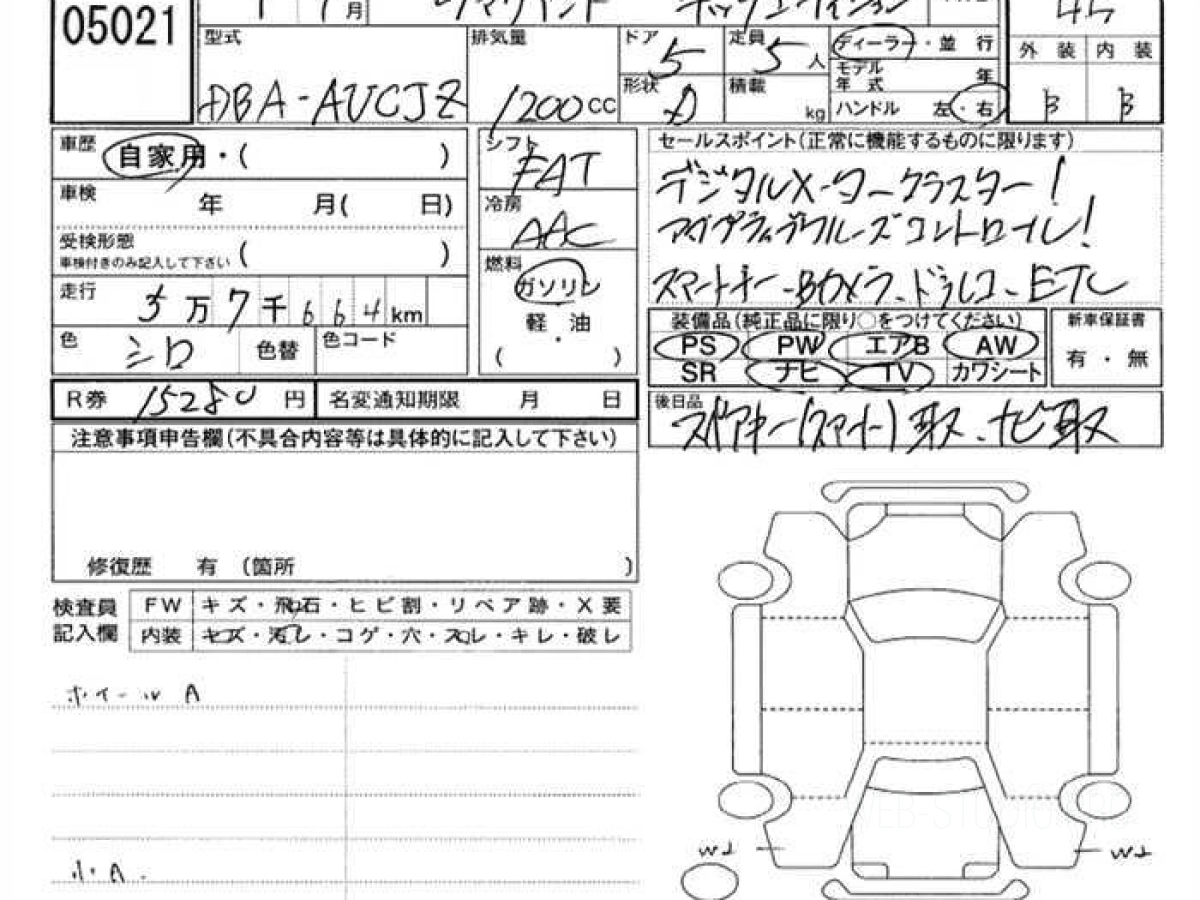 05021
月
型式 DBA-AUCJZ
排気量 1200 CC
ドア 5 定員 5 人
形状 D 積載 kg
ディーラー・並 行
モデル年式 年
ハンドル 左・右
外 装 内 装
B B
車歴 自家用・( )
車検 年 月( 日)
受検形態
車検付きのみ記入して下さい ( )
走行 5 万 7 千 6 6 4 km
色 シロ 色替 色コード
シフト FAT
冷房 AAC
燃料
ガソリン
軽・油
( )
セールスポイント(正常に機能するものに限ります)
デジタルメータークラスター!
アダプティブクルーズコントロール!
スマートキー、Bカメラ、ドラレコ、ETC
装備品(純正品に限り○をつけてください)
PS PW エアB AW
SR ナビ TV カワシート
新車保証書
有・無
R券 15280 円 名変通知期限 月 日
後日品
スペアキー(スマート)取、ナビ取
注意事項申告欄(不具合内容等は具体的に記入して下さい)
修復歴 有 (箇所 )
検査員
記入欄
FW キズ・飛石・ヒビ割・リペア跡・X要
内装 キズ・汚レ・コゲ・穴・スレ・キレ・破レ
ホイールA
小A.
W1 W1